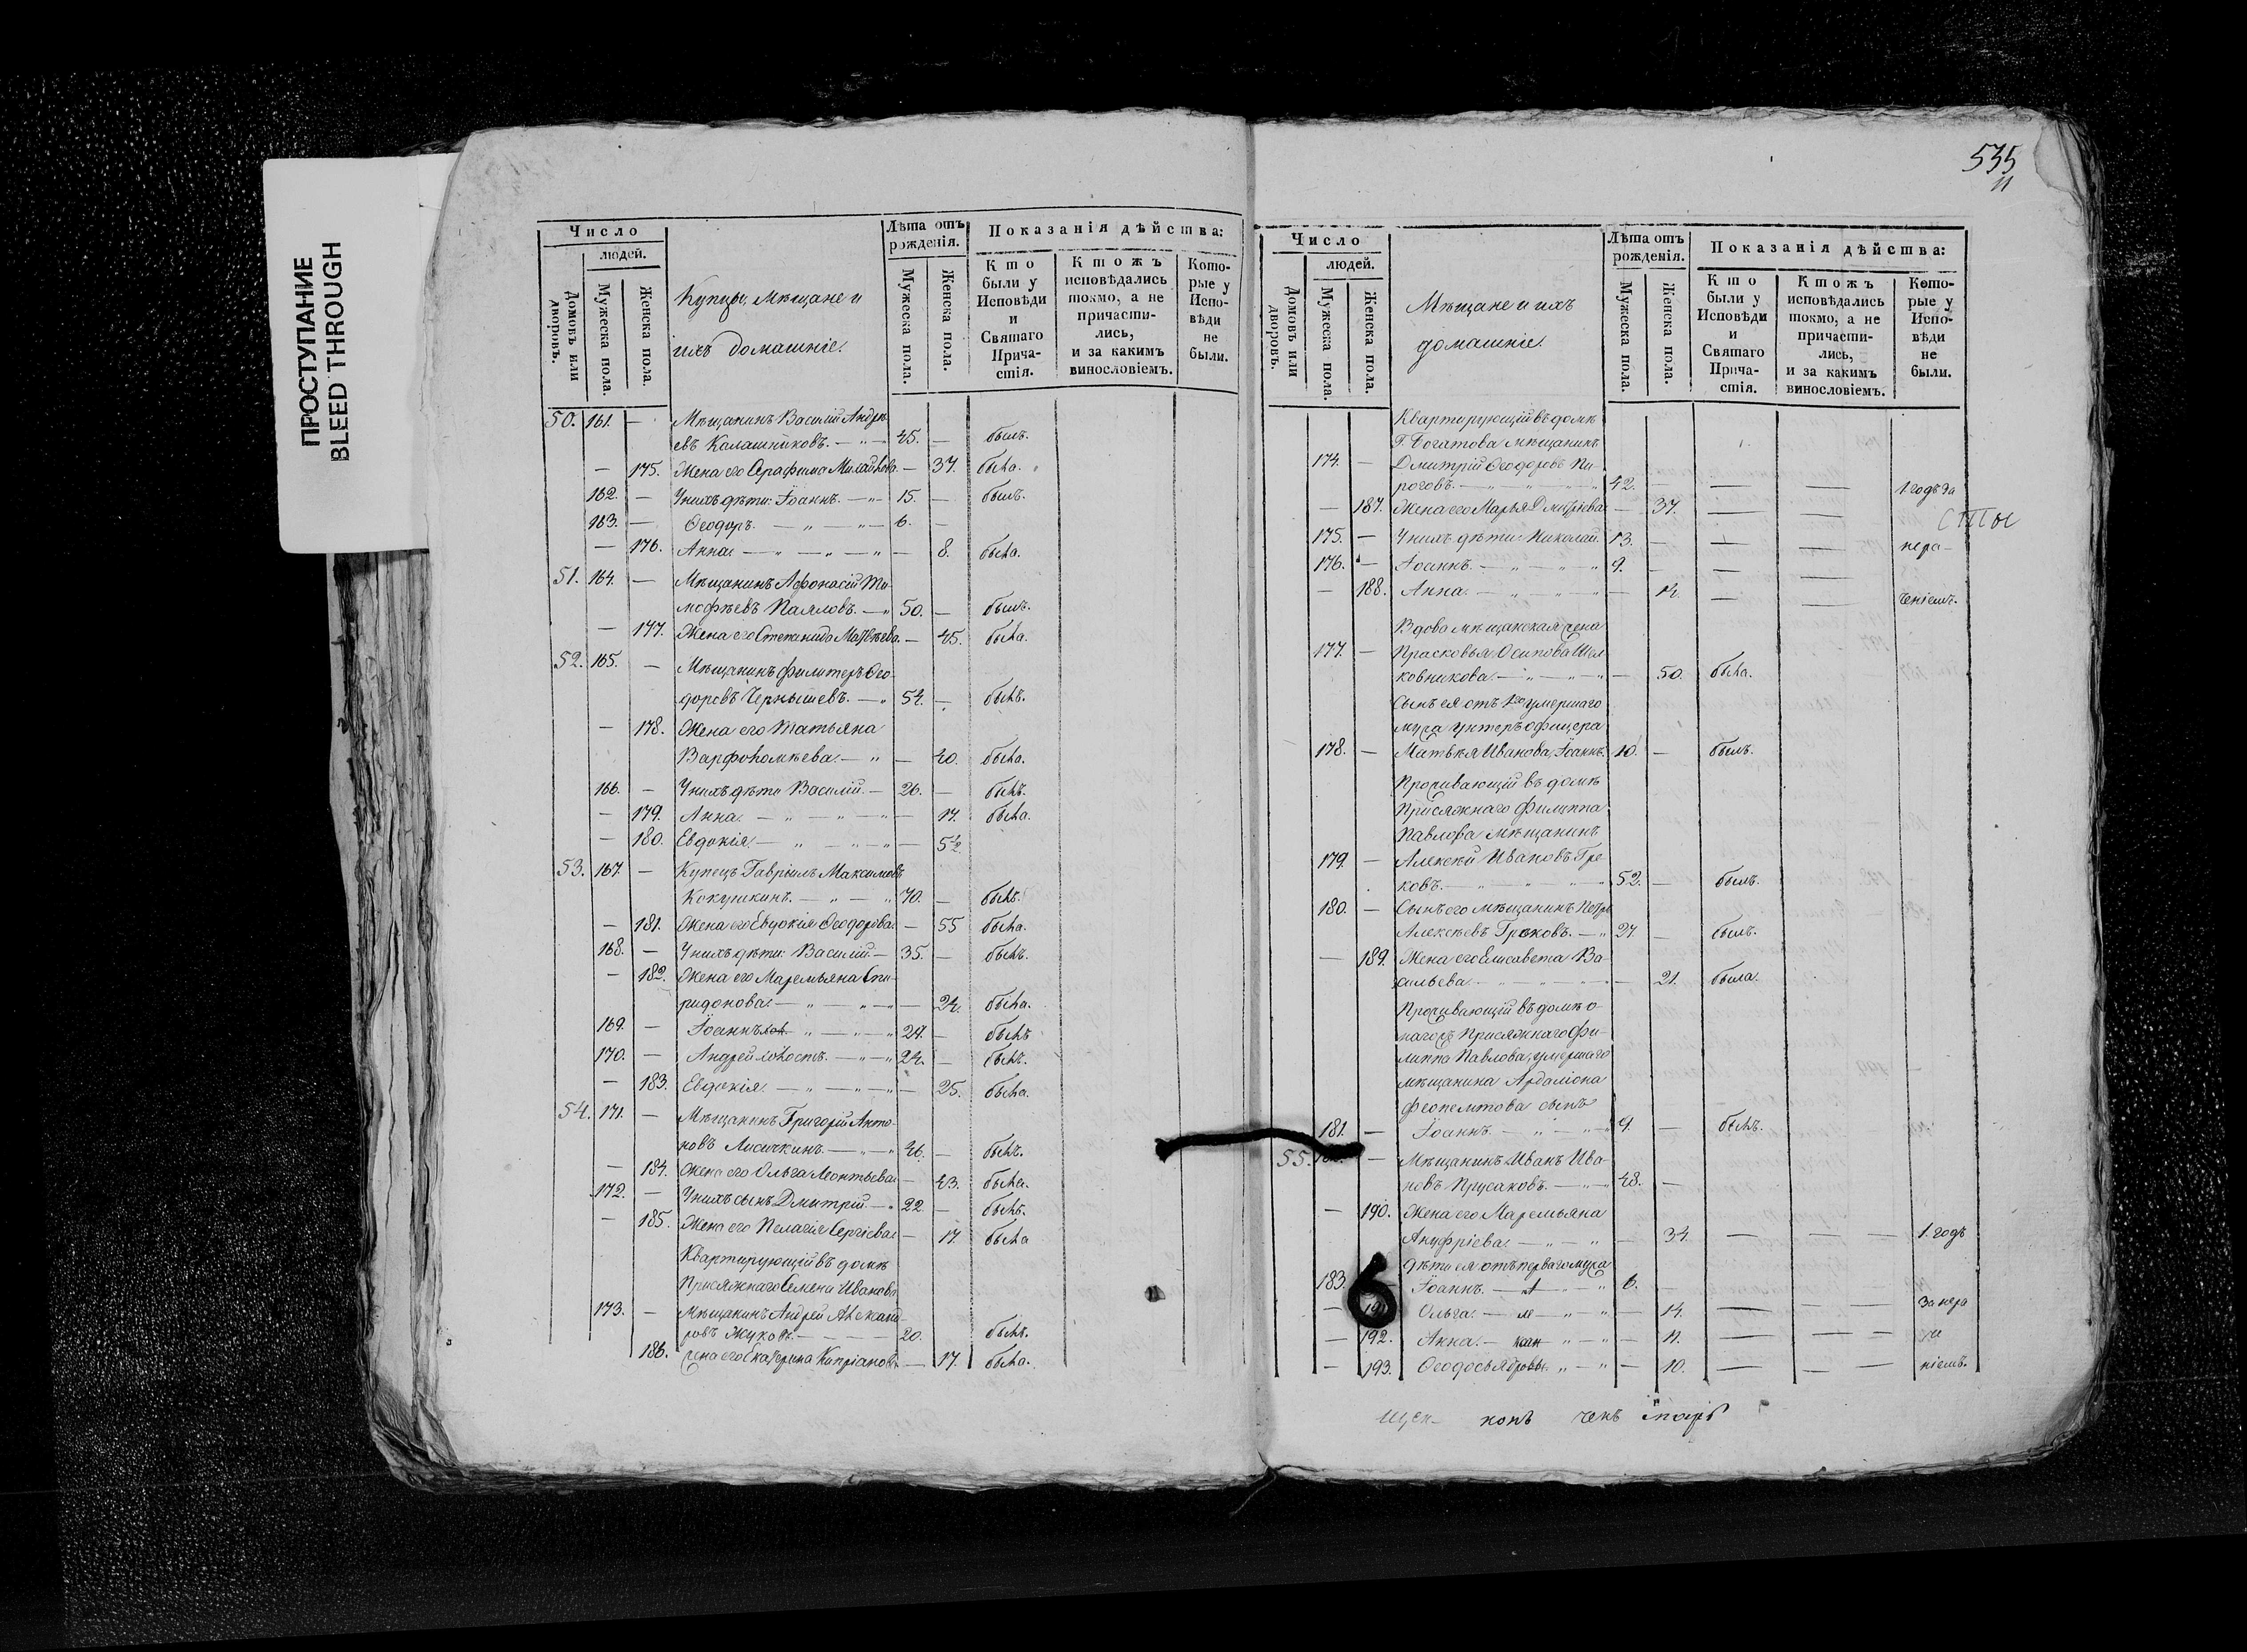 ПРОСТУПАНИЕ
BLEED THROUGH
535
11
Число
людей.
Домовъ или дворовъ.
Мужеска пола.
Женска пола.
Купцы, Мѣщане и
ихъ домашніе.
Лѣта отъ рожденія.
Мужеска пола.
Женска пола.
Показанія дѣйства:
Кто были у Исповѣди и Святаго Причастія.
Ктожъ исповѣдались токмо, а не причастились, и за какимъ винословіемъ.
Которые у Исповѣди не были.
50. 161. — Мѣщанинъ Василій Андре
евъ Калашниковъ. — 45. — былъ.
— 175. Жена его Серафима Михайлова — 37. была.
162. — У нихъ дѣти: Іоаннъ. — 15. — былъ.
163. — Ѳеодоръ. — 6. —
— 176. Анна. — 8. была.
51. 164. — Мѣщанинъ Афонасій Ти-
мофѣевъ Паяловъ. — 50. — былъ.
— 177. Жена его Степанида Матвѣева — 45. была.
52. 165. — Мѣщанинъ Филитеръ Ѳео-
доровъ Чернышевъ. — 54. — былъ.
— 178. Жена его Татьяна
Варфоломѣева. — 40. была.
166. — У нихъ дѣти Василій. — 26. — былъ.
— 179. Анна. — 17. была.
— 180. Евдокія. —
53. 167. — Купецъ Гаврiилъ Максимовъ
Кокушкинъ. — 70. — былъ.
— 181. Жена его Евдокія Ѳеодорова. — 55 была.
168. — У нихъ дѣти: Василій. — 35. — былъ.
— 182. Жена его Маремьяна Спи-
ридонова. — 24. была.
169. — Іоаннъ — 27. — былъ
170. — Андрей холостъ. — 24. — былъ.
— 183. Евдокія. — 25. была.
54. 171. — Мѣщанинъ Григорій Анто-
новъ Лисичкинъ. — 46. — былъ.
— 184. Жена его Ольга Леонтьева — 43. была.
172. — У нихъ сынъ Дмитрій. — 22. — былъ.
— 185. Жена его Пелагія Сергіева — 17. была
Квартирующій въ домѣ
Присяжнаго Семена Иванова
173. — Мѣщанинъ Андрей Александ-
ровъ Жуковъ. — 20. былъ.
186. жена его Екатерина Кипріанова — 17. была.
Число
людей.
Домовъ или дворовъ.
Мужеска пола.
Женска пола.
Мѣщане и ихъ
домашніе.
Лѣта отъ рожденія.
Мужеска пола.
Женска пола.
Показанія дѣйства:
Кто были у Исповѣди и Святаго Причастія.
Ктожъ исповѣдались токмо, а не причастились, и за какимъ винословіемъ.
Которые у Исповѣди не были.
Квартирующій въ домѣ
Г. Богатова мѣщанинъ
174. — Дмитрій Ѳеодоровъ Пи-
роговъ. — 42. — — — 1. годъ за
— 187. Жена его Марья Дмитріева — 37. — —
175. — У нихъ дѣти: Николай. 13. — — — нера-
176. — Іоаннъ. — 9. — — —
— 188. Анна. — 12. — — ченіемъ.
Вдова мѣщанская жена
177. — Прасковья Осипова Шел
ковникова. — 50. была.
Сынъ ея отъ 1го умершаго
мужа унтеръ офицера
178. — Матвѣя Иванова, Іоаннъ. 10. — былъ.
Проживающій въ домѣ
Присяжнаго Филиппа
Павлова мѣщанинъ
179. — Алексѣй Ивановъ Гре-
ковъ. — 52. — былъ.
180. — Сынъ его мѣщанинъ Петръ
Алексѣевъ Грековъ. — 27. — былъ.
— 189. Жена его Елисавета Ва-
сильева. — 21. была.
Проживающій въ домѣ о-
наго Присяжнаго Фи-
липпа Павлова, умершаго
мѣщанина Ардаліона
сынъ
181. — Іоаннъ. — 9. — былъ.
55. — Мѣщанинъ Иванъ Ива-
новъ Прусаковъ. — 48. —
— 190. Жена его Маремьяна
Ануфріева. — 34. — — 1. годъ
Дѣти ея отъ перваго мужа
183. Іоаннъ. — 6. —
— Ольга. — 14. — — за нера
— 192. Анна. — 11. — —
— 193. Ѳеодосья — 10. — — ніемъ.